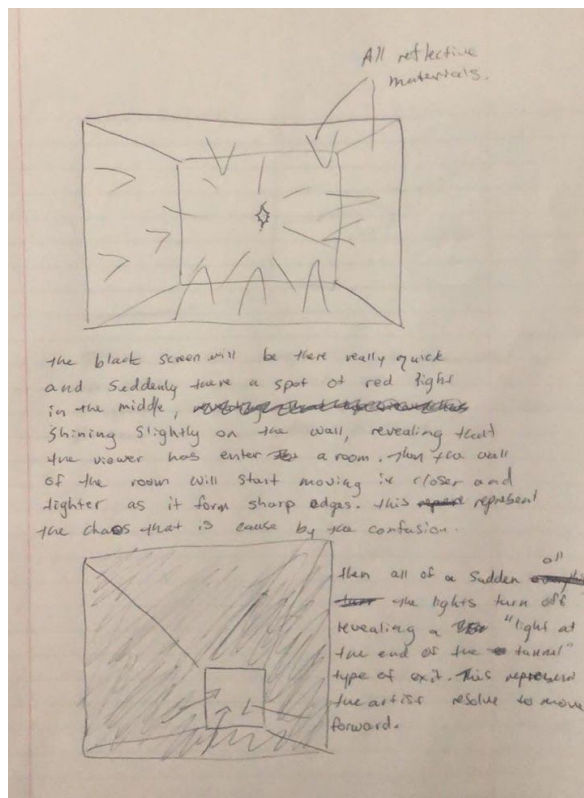 All reflective
materials.
the black screen will be there really quick
and suddenly there a spot of red light
in the middle,
shining slightly on the wall, revealing that
the viewer has enter a room. Then the wall
of the room will start moving in closer and
tighter as it form sharp edges. this represent
the chaos that is cause by the confusion.
then all of a sudden all
the lights turn off
revealing a "light at
the end of the tunnel"
type of exit. This represend
the artist resolve to move
forward.